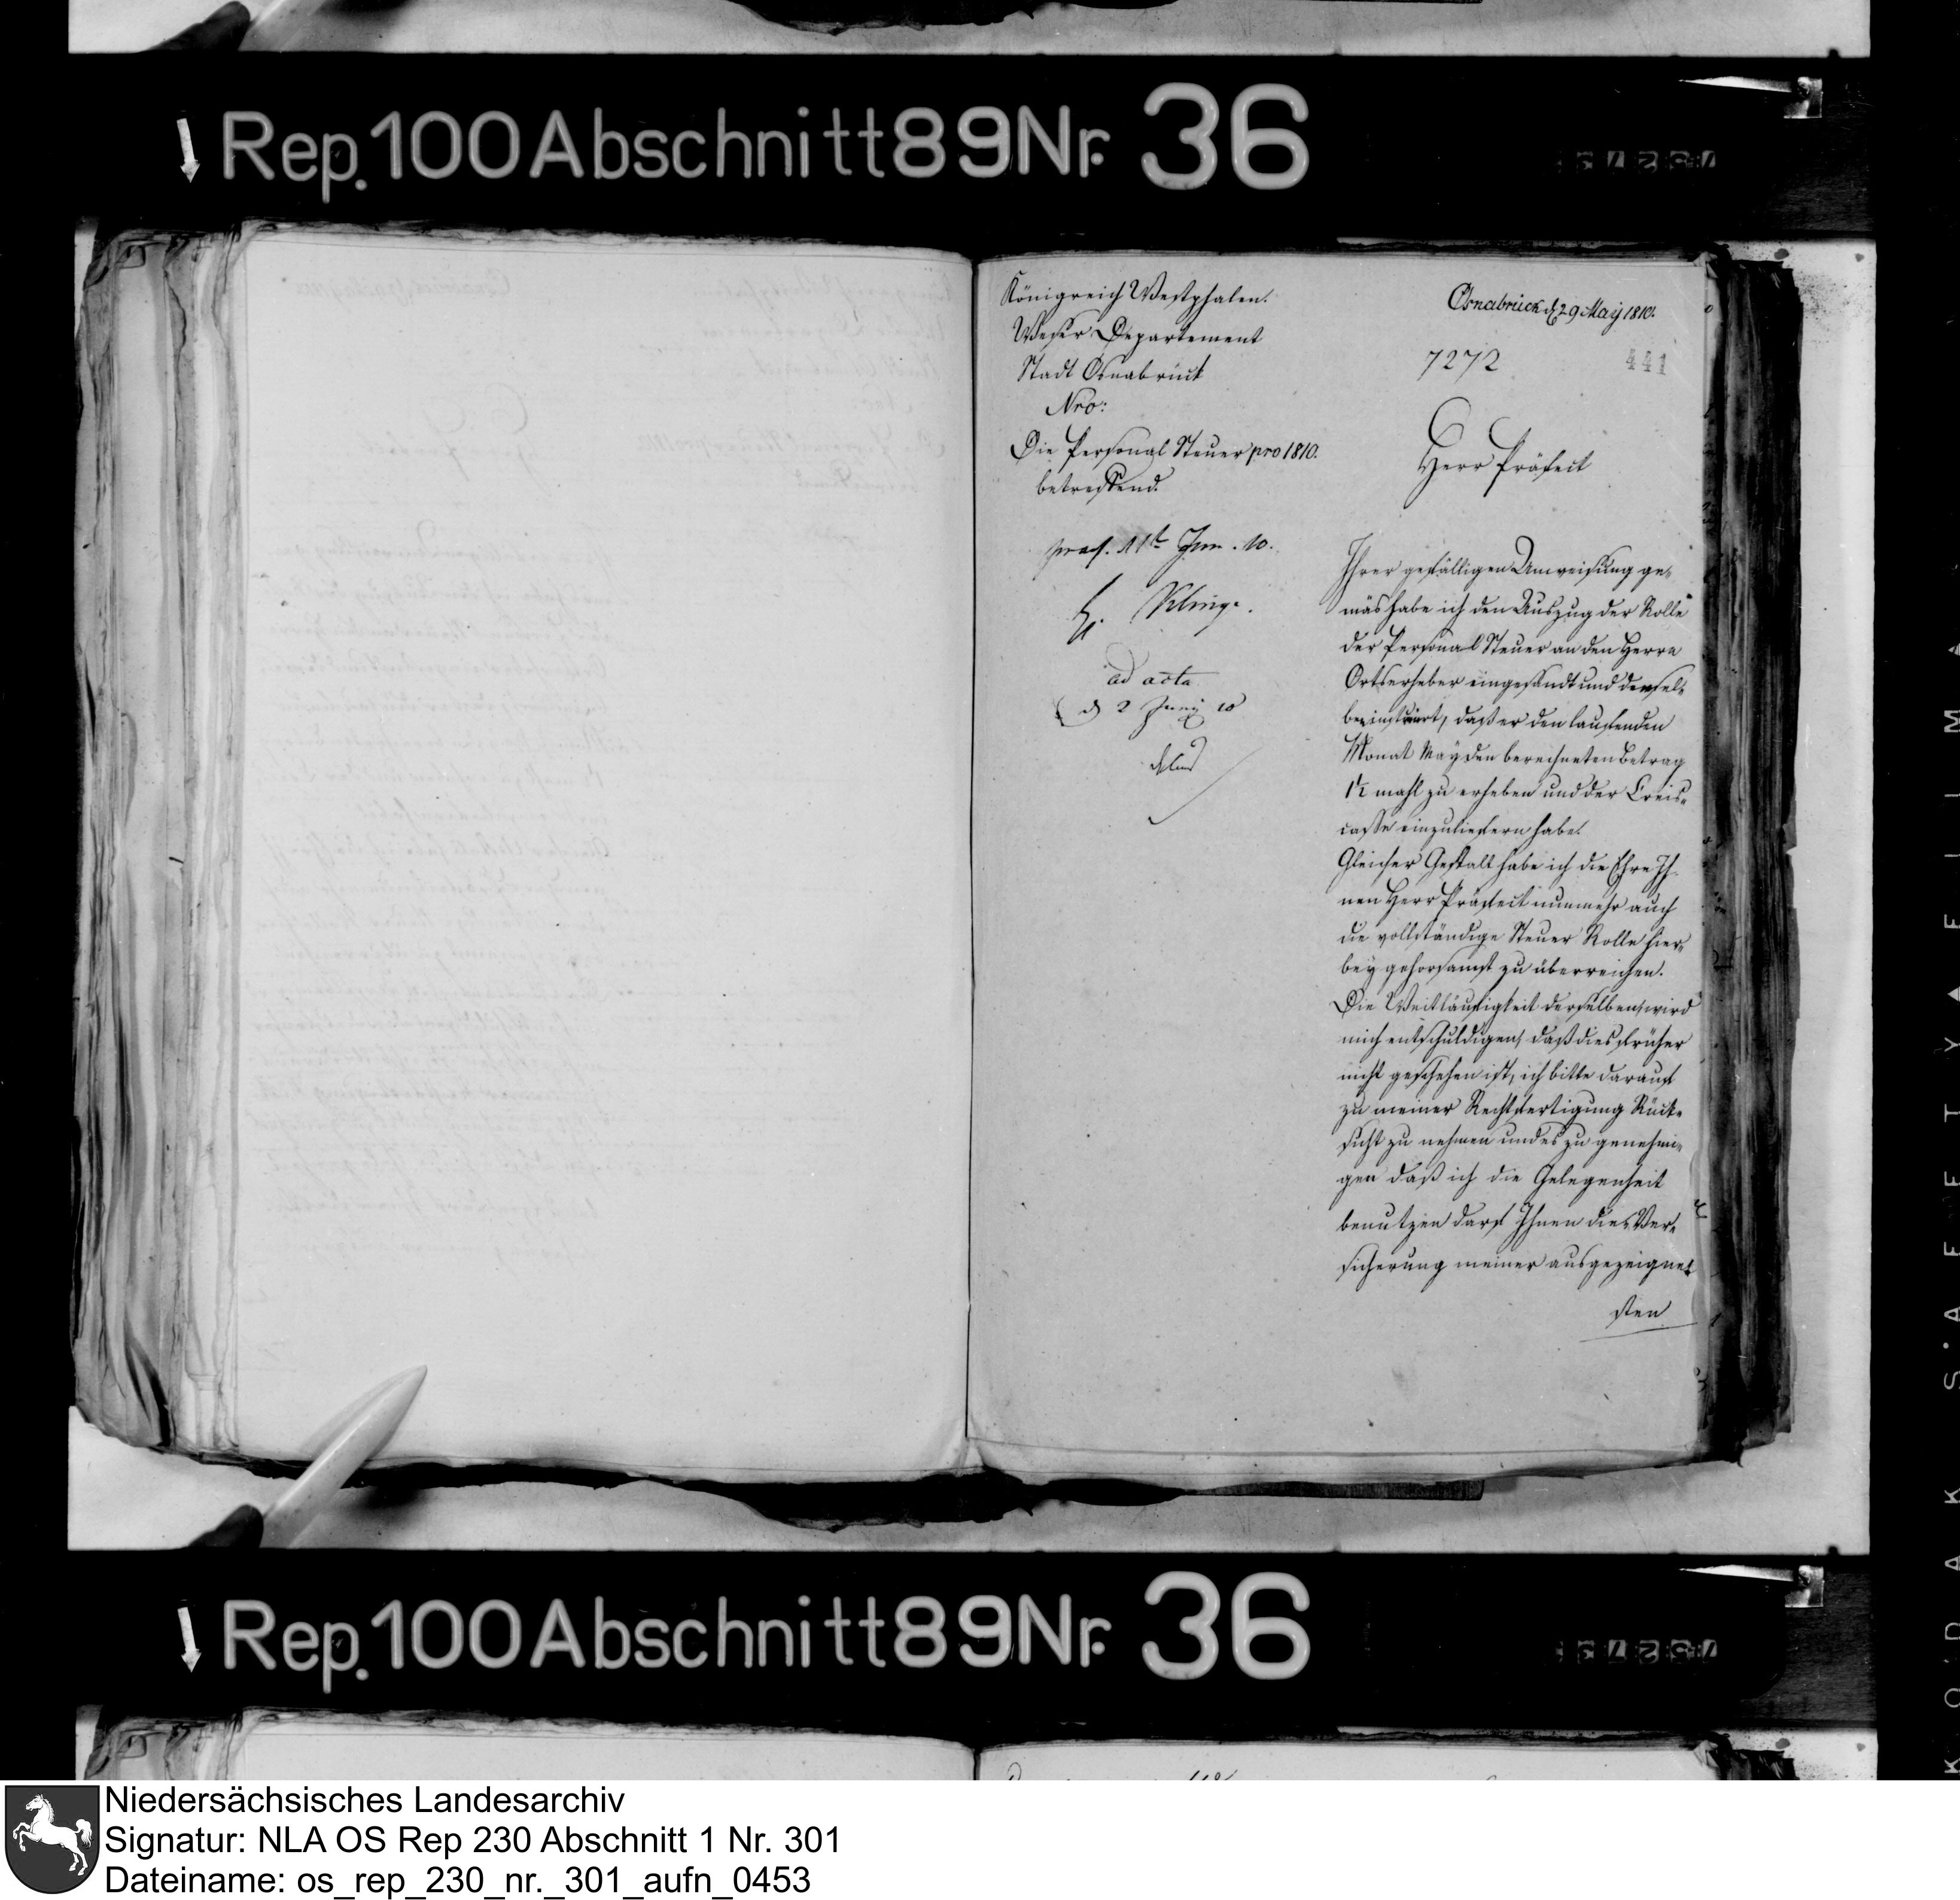 Rep. 100 Abschnitt 89 Nr. 36
Königreich Westphalen.
Weser Departement
Stadt Osnabrück
Nro:
Die Personal Steuer pro 1810.
betreffend.
praes. 11t Jun. 10.
H. Klinge.
ad acta
d 2 Juny 10
Osnabrück d 29 May 1810.
7272
441
Herr Präfect
Ihrer gefälligen Anweisung ge-
mäs habe ich den Auszug der Rolle
der Personal Steuer an den Herrn
Ortserheber eingesandt und densel-
ben instruirt, daß er den laufenden
Monat May den berechneten Betrag
1½ mahl zu erheben und der Creis-
casse einzuliefern habe.
Gleicher Gestalt habe ich die Ehre Ih-
nen Herr Präfect nunmehr auch
die vollständige Steuer Rolle hier-
bey gehorsamst zu überreichen.
Die Weitläufigkeit derselben wird
mich entschuldigen, daß dies früher
nicht geschehen ist, ich bitte darauf
zu meiner Rechtfertigung Rück-
sicht zu nehmen und es zu genehmi-
gen daß ich die Gelegenheit
benutzen darf Ihnen die Ver-
sicherung meiner ausgezeignet
sten
Rep. 100 Abschnitt 89 Nr. 36
Niedersächsisches Landesarchiv
Signatur: NLA OS Rep 230 Abschnitt 1 Nr. 301
Dateiname: os_rep_230_nr._301_aufn_0453